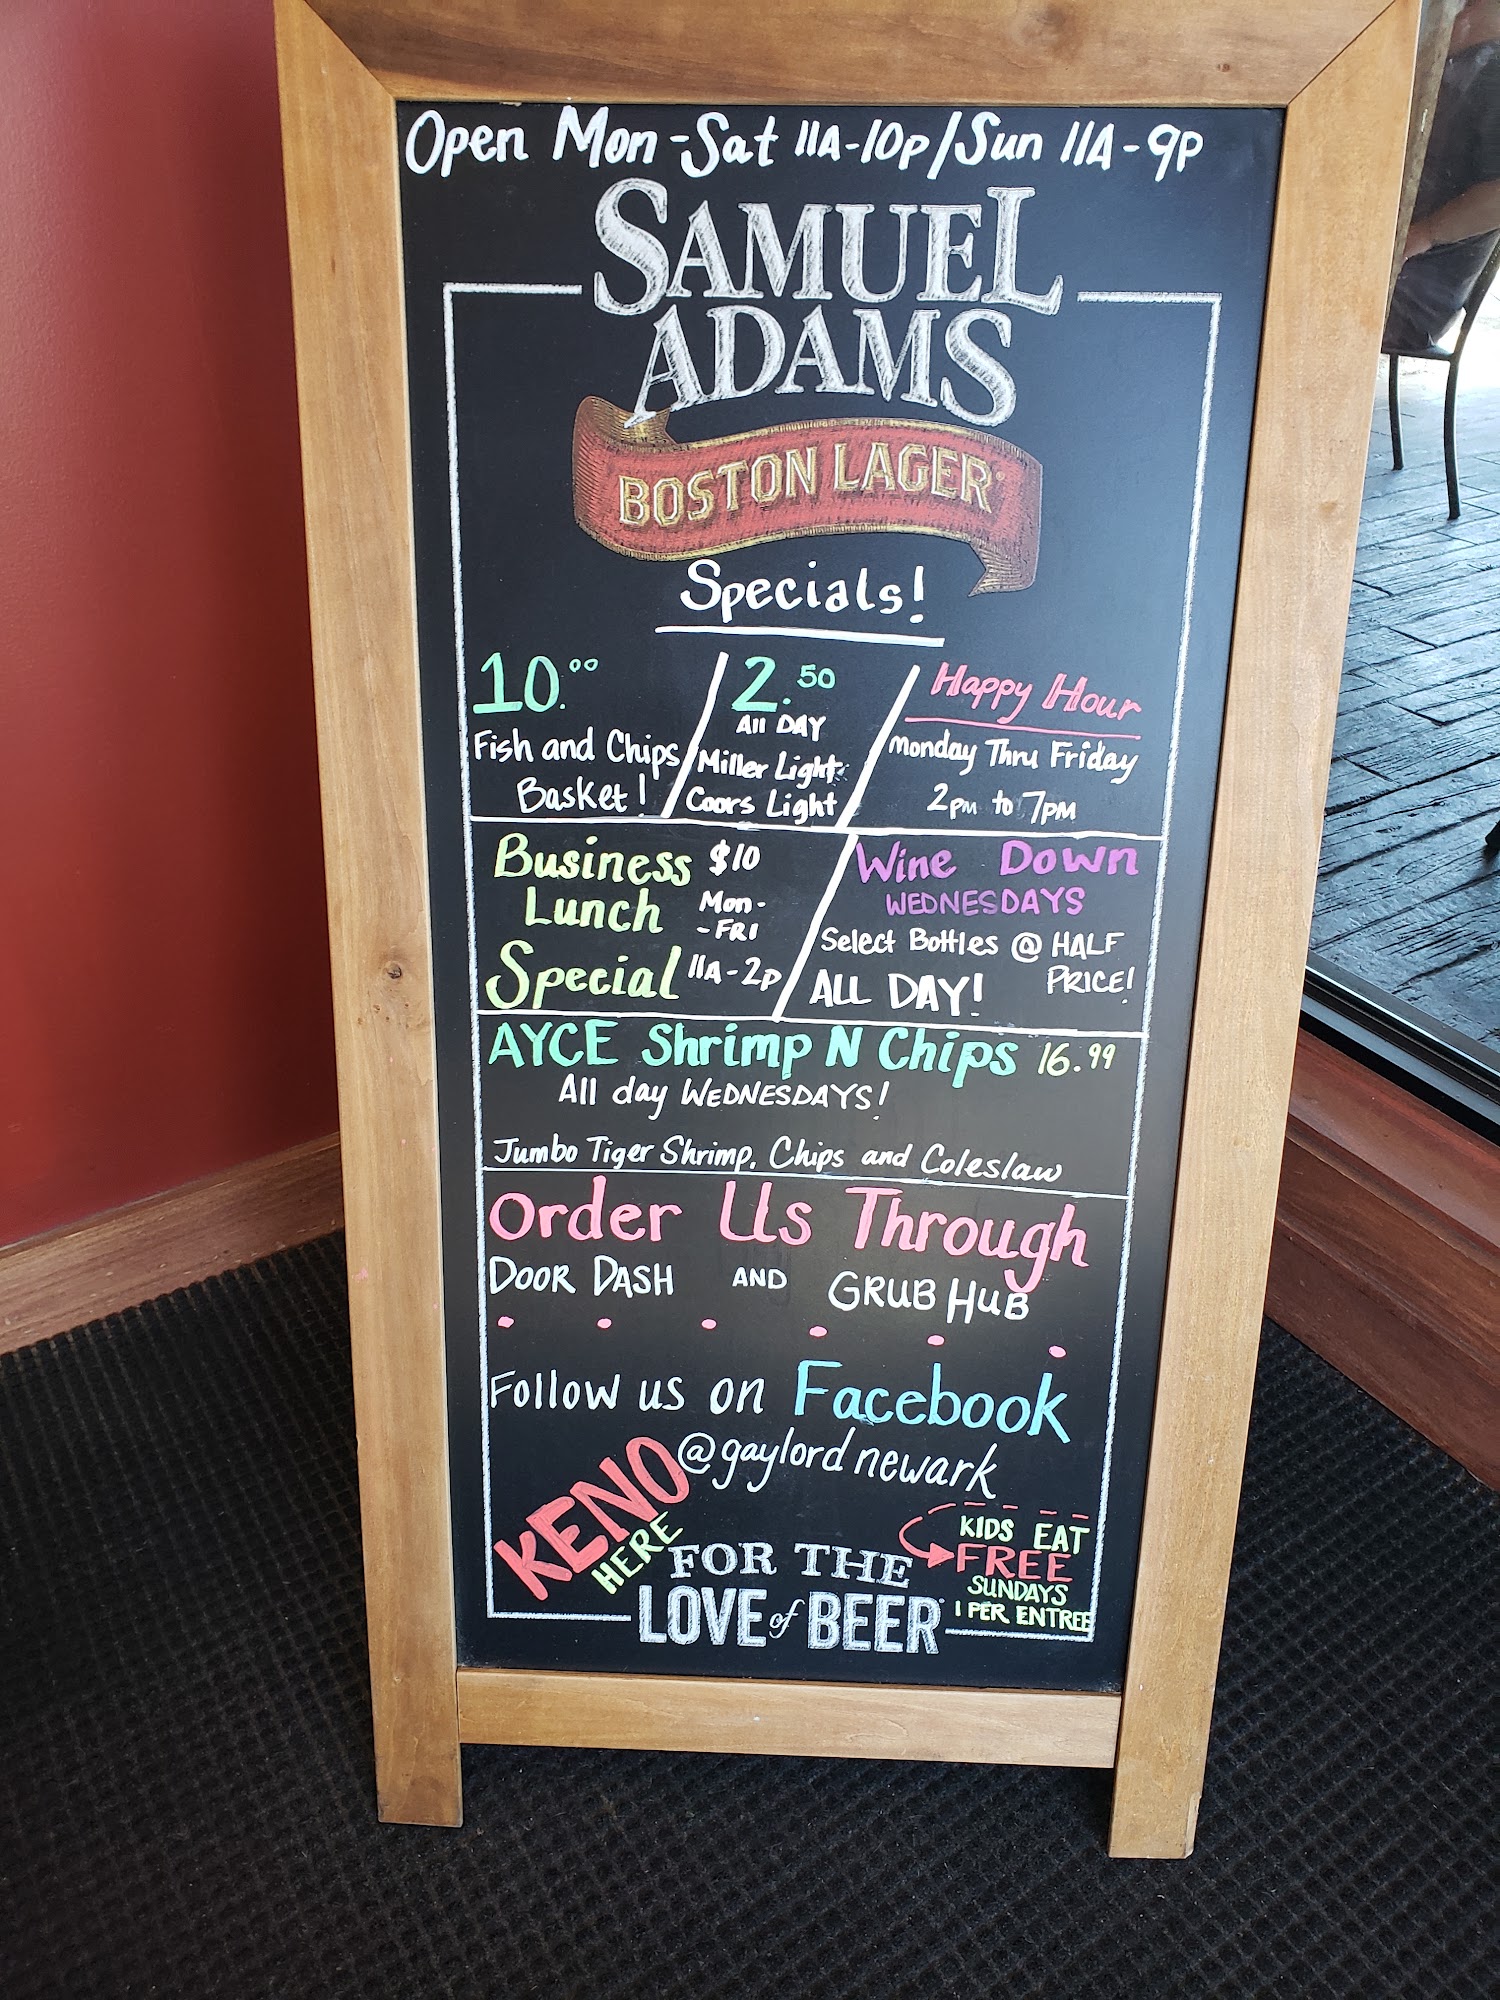 Open Mon-Sat 11A-10p/Sun 11A-9p
SAMUEL
ADAMS
BOSTON LAGER
Specials!
10.00
Fish and Chips
Basket!
2.50
All DAY
Miller Light
Coors Light
Happy Hour
Monday Thru Friday
2pm to 7pm
Business $10
Lunch Mon-
-FRI
Special 11A-2p
Wine Down
WEDNESDAYS
Select Bottles @ HALF
PRICE!
ALL DAY!
AYCE Shrimp N Chips 16.99
All day WEDNESDAYS!
Jumbo Tiger Shrimp, Chips and Coleslaw
Order Us Through
DOOR DASH AND GRUB HUB
Follow us on Facebook
@gaylordnewark
KENO
HERE
FOR THE
LOVE of BEER
KIDS EAT
FREE
SUNDAYS
1 PER ENTREE